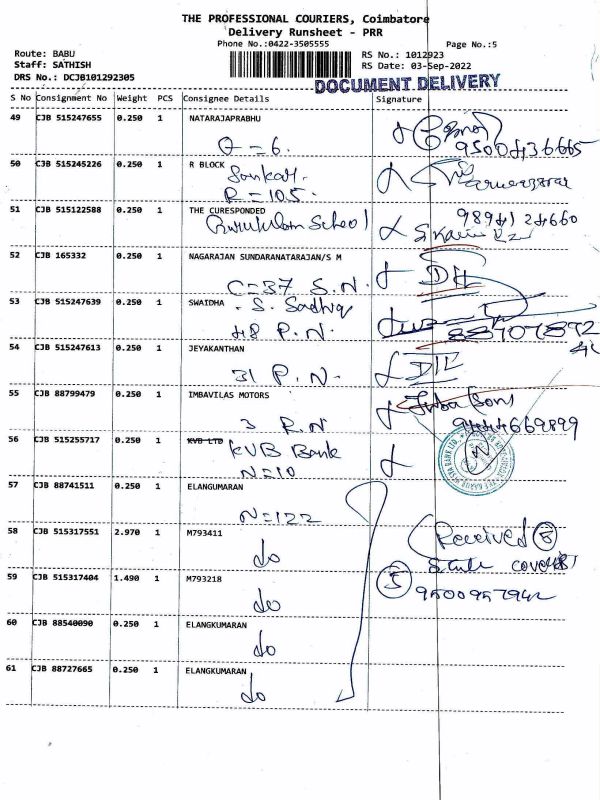 THE PROFESSIONAL COURIERS, Coimbatore
Delivery Runsheet - PRR
Phone No.:0422-3505555
Page No.:5
Route: BABU
RS No.: 1012923
Staff: SATHISH
RS Date: 03-Sep-2022
DRS No.: DCJB101292305
DOCUMENT DELIVERY
S No Consignment No Weight PCS Consignee Details Signature
49 CJB 515247655 0.250 1 NATARAJAPRABHU
O = 6.
50 CJB 515245226 0.250 1 R BLOCK
R = 105.
51 CJB 515122588 0.250 1 THE CURESPONDED
School
52 CJB 165332 0.250 1 NAGARAJAN SUNDARANATARAJAN/S M
C=37 S.N.
53 CJB 515247639 0.250 1 SWAIDHA - S. Sadhiq
48 P.N.
54 CJB 515247613 0.250 1 JEYAKANTHAN
31 P.N.
55 CJB 88799479 0.250 1 IMBAVILAS MOTORS
3 R.N
9444669899
56 CJB 515255717 0.250 1 KVB LTD
KVB Bank
N=10
57 CJB 88741511 0.250 1 ELANGUMARAN
N=122
58 CJB 515317551 2.970 1 M793411
Received 5
do
59 CJB 515317404 1.490 1 M793218
5
do
9500957942
60 CJB 88540090 0.250 1 ELANGKUMARAN
do
61 CJB 88727665 0.250 1 ELANGKUMARAN
do